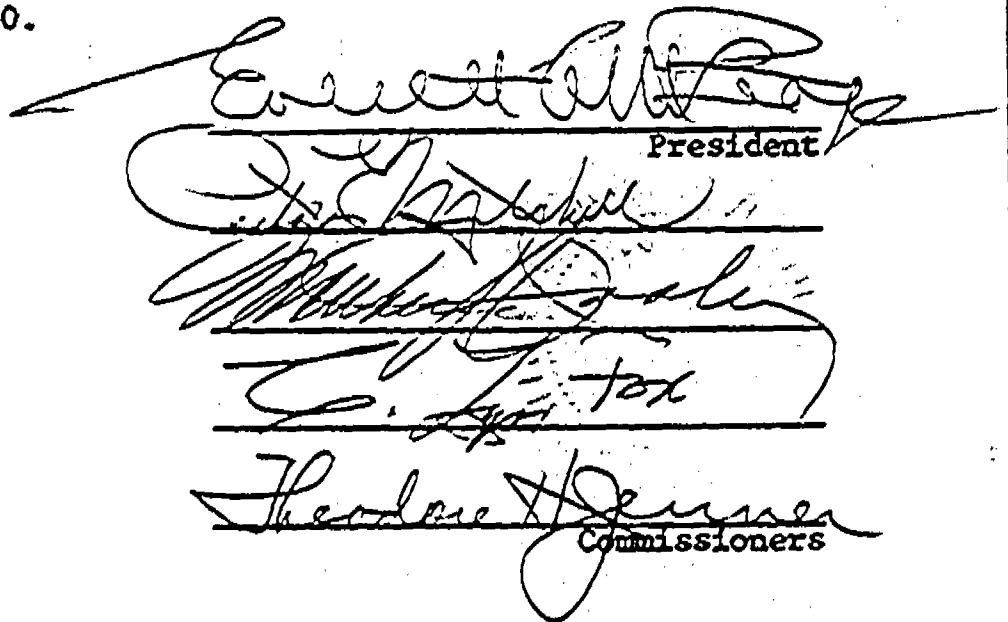 0.
Everett C. McKeage
President
Peter E. Mitchell
C. Lyn Fox
Theodore H Jenner
Commissioners